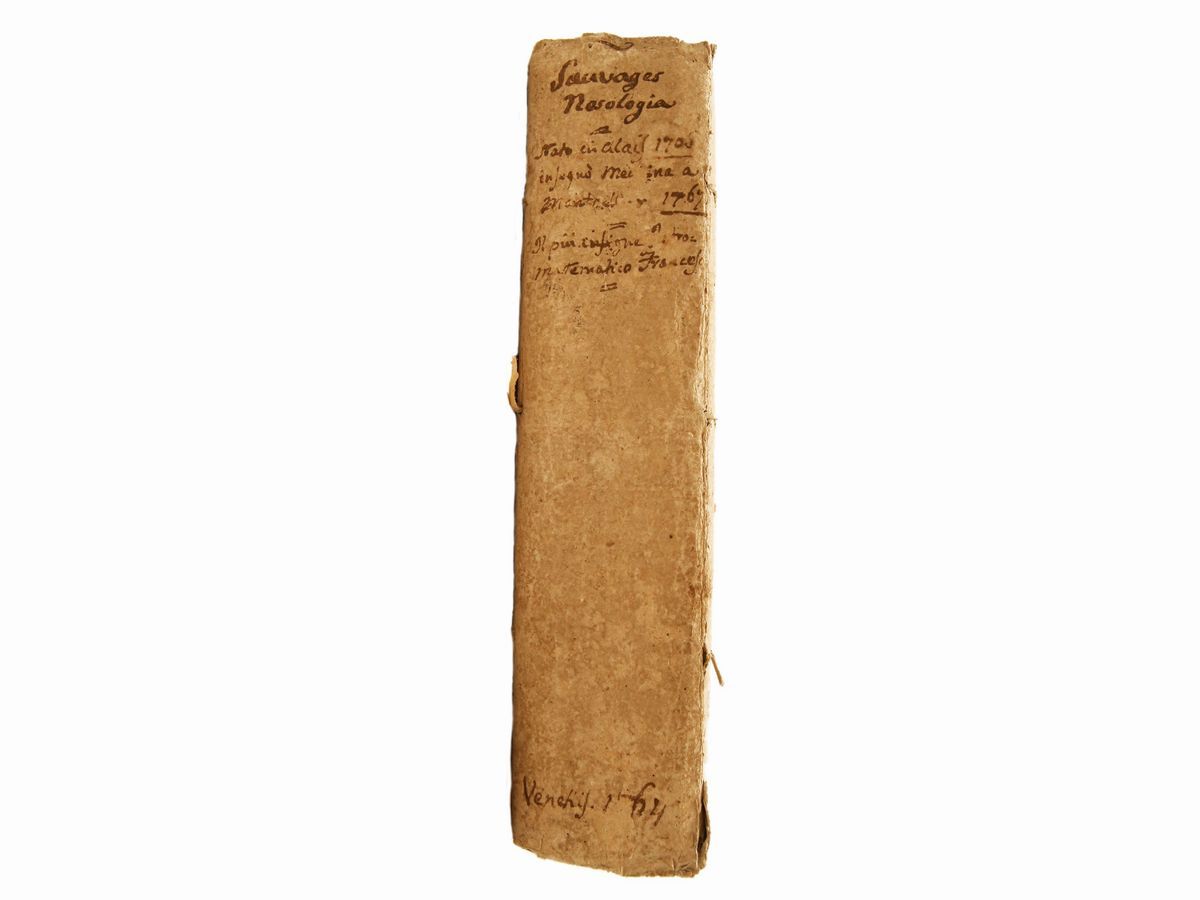 Sauvages
Nosologia
Nato in Alais 1706
insegnò Med ina a
1767
Il più insigne
matematico Frances
Venetijs. 1764